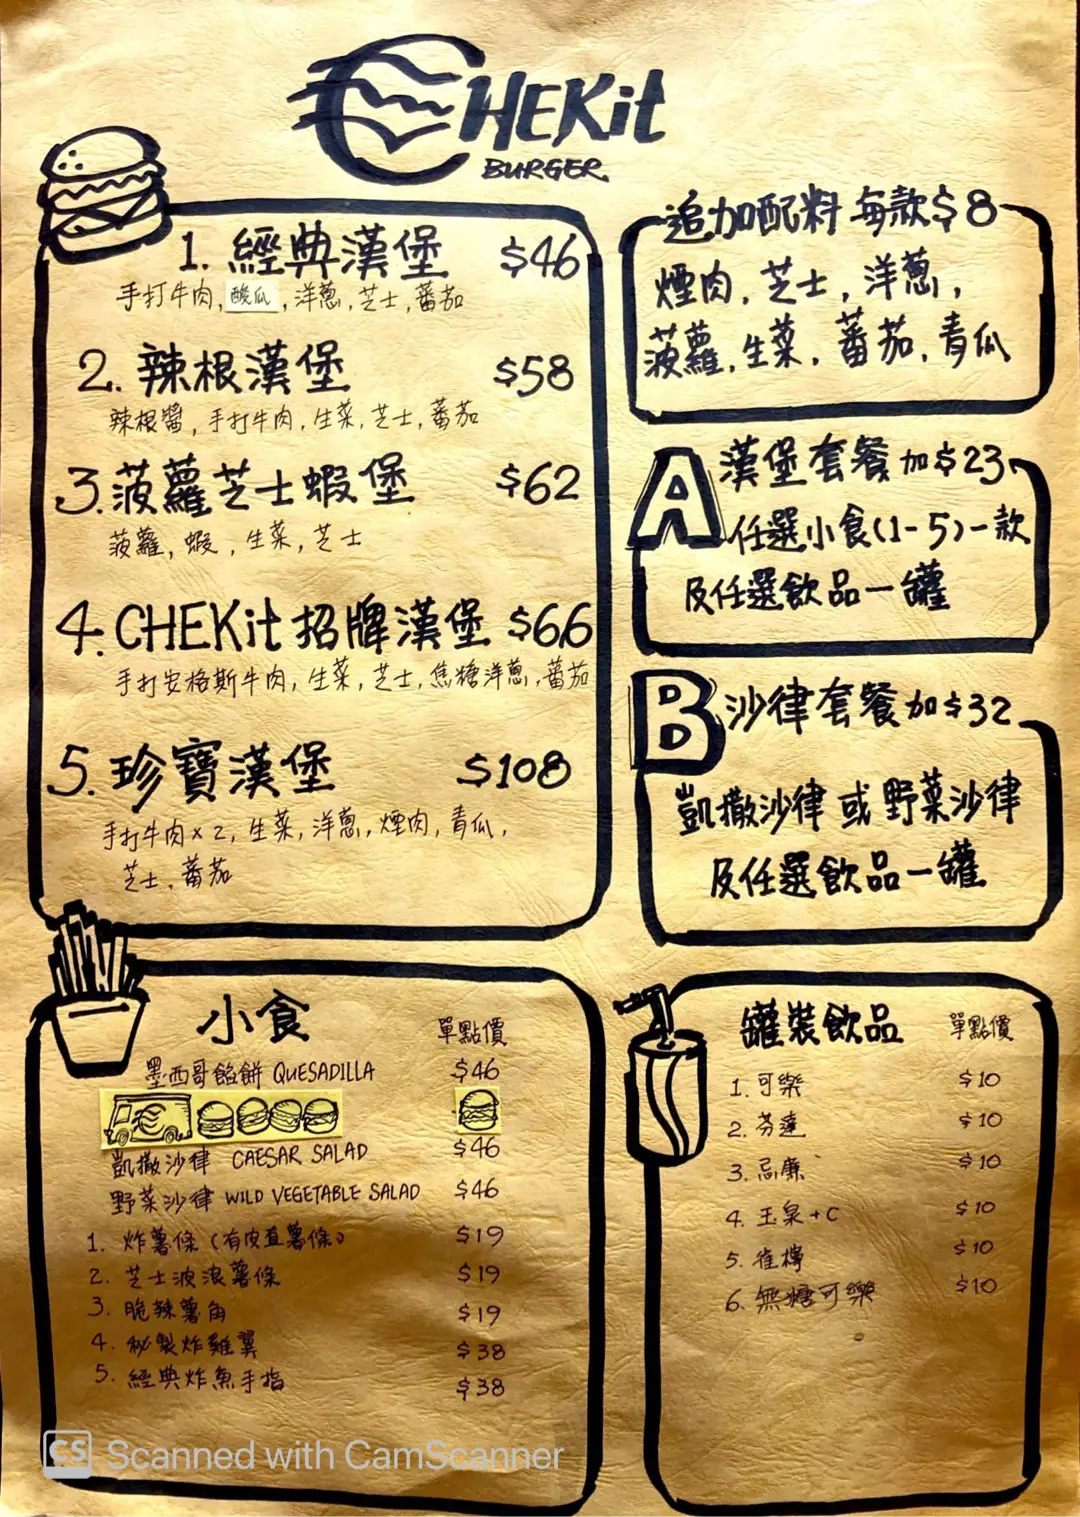 CHEKit
BURGER
1. 經典漢堡 $46
手打牛肉, 酸瓜, 洋蔥, 芝士, 蕃茄
2. 辣根漢堡 $58
辣根醬, 手打牛肉, 生菜, 芝士, 蕃茄
3. 菠蘿芝士蝦堡 $62
菠蘿, 蝦, 生菜, 芝士
4. CHEKit 招牌漢堡 $66
手打安格斯牛肉, 生菜, 芝士, 焦糖洋蔥, 蕃茄
5. 珍寶漢堡 $108
手打牛肉x2, 生菜, 洋蔥, 煙肉, 青瓜,
芝士, 蕃茄
追加配料 每款$8
煙肉, 芝士, 洋蔥,
菠蘿, 生菜, 蕃茄, 青瓜
A 漢堡套餐 加$23
任選小食(1-5)一款
及任選飲品一罐
B 沙律套餐 加$32
凱撒沙律 或 野菜沙律
及任選飲品一罐
小食 單點價
墨西哥餡餅 QUESADILLA $46
凱撒沙律 CAESAR SALAD $46
野菜沙律 WILD VEGETABLE SALAD $46
1. 炸薯條 (有皮直薯條) $19
2. 芝士波浪薯條 $19
3. 脆辣薯角 $19
4. 秘製炸雞翼 $38
5. 經典炸魚手指 $38
罐裝飲品 單點價
1. 可樂 $10
2. 芬達 $10
3. 忌廉 $10
4. 玉泉+C $10
5. 雀檸 $10
6. 無糖可樂 $10
CS Scanned with CamScanner